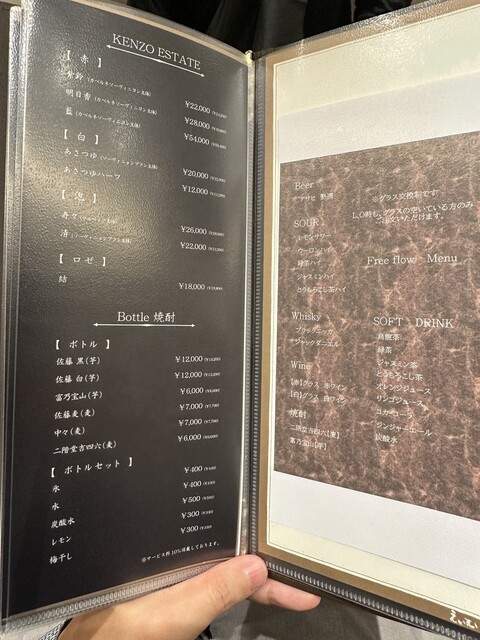 KENZO ESTATE
【 赤 】
紫鈴 (カベルネソーヴィニヨン主体) ¥22,000
明日香 (カベルネソーヴィニヨン主体) ¥28,000
藍 (カベルネソーヴィニヨン主体) ¥54,000
【 白 】
あさつゆ (ソーヴィニヨンブラン主体) ¥20,000
あさつゆハーフ ¥12,000
【 泡 】
寿 ¥26,000
清 (ソーヴィニヨンブラン主体) ¥22,000
【 ロゼ 】
結 ¥18,000
Bottle 焼酎
【 ボトル 】
佐藤 黒(芋) ¥12,000
佐藤 白(芋) ¥12,000
富乃宝山(芋) ¥6,000
佐藤麦(麦) ¥7,000 (¥7,700)
中々(麦) ¥7,000 (¥7,700)
二階堂吉四六(麦) ¥6,000
【 ボトルセット 】
氷 ¥400
水 ¥400
炭酸水 ¥500
レモン ¥300
梅干し ¥300
※サービス料10%頂戴しております。
Free flow Menu
※グラス交換制です
L.O時も、グラスの空いている方のみ
ご注文いただけます。
Beer
アサヒ 熟撰
SOUR
レモンサワー
ウーロンハイ
緑茶ハイ
ジャスミンハイ
とうもろこし茶ハイ
Whisky
ブラックニッカ
ジャックダニエル
Wine
【赤】グラス 赤ワイン
【白】グラス 白ワイン
焼酎
二階堂吉四六【麦】
富乃宝山【芋】
SOFT DRINK
烏龍茶
緑茶
ジャスミン茶
とうもろこし茶
オレンジジュース
リンゴジュース
コカコーラ
ジンジャーエール
炭酸水